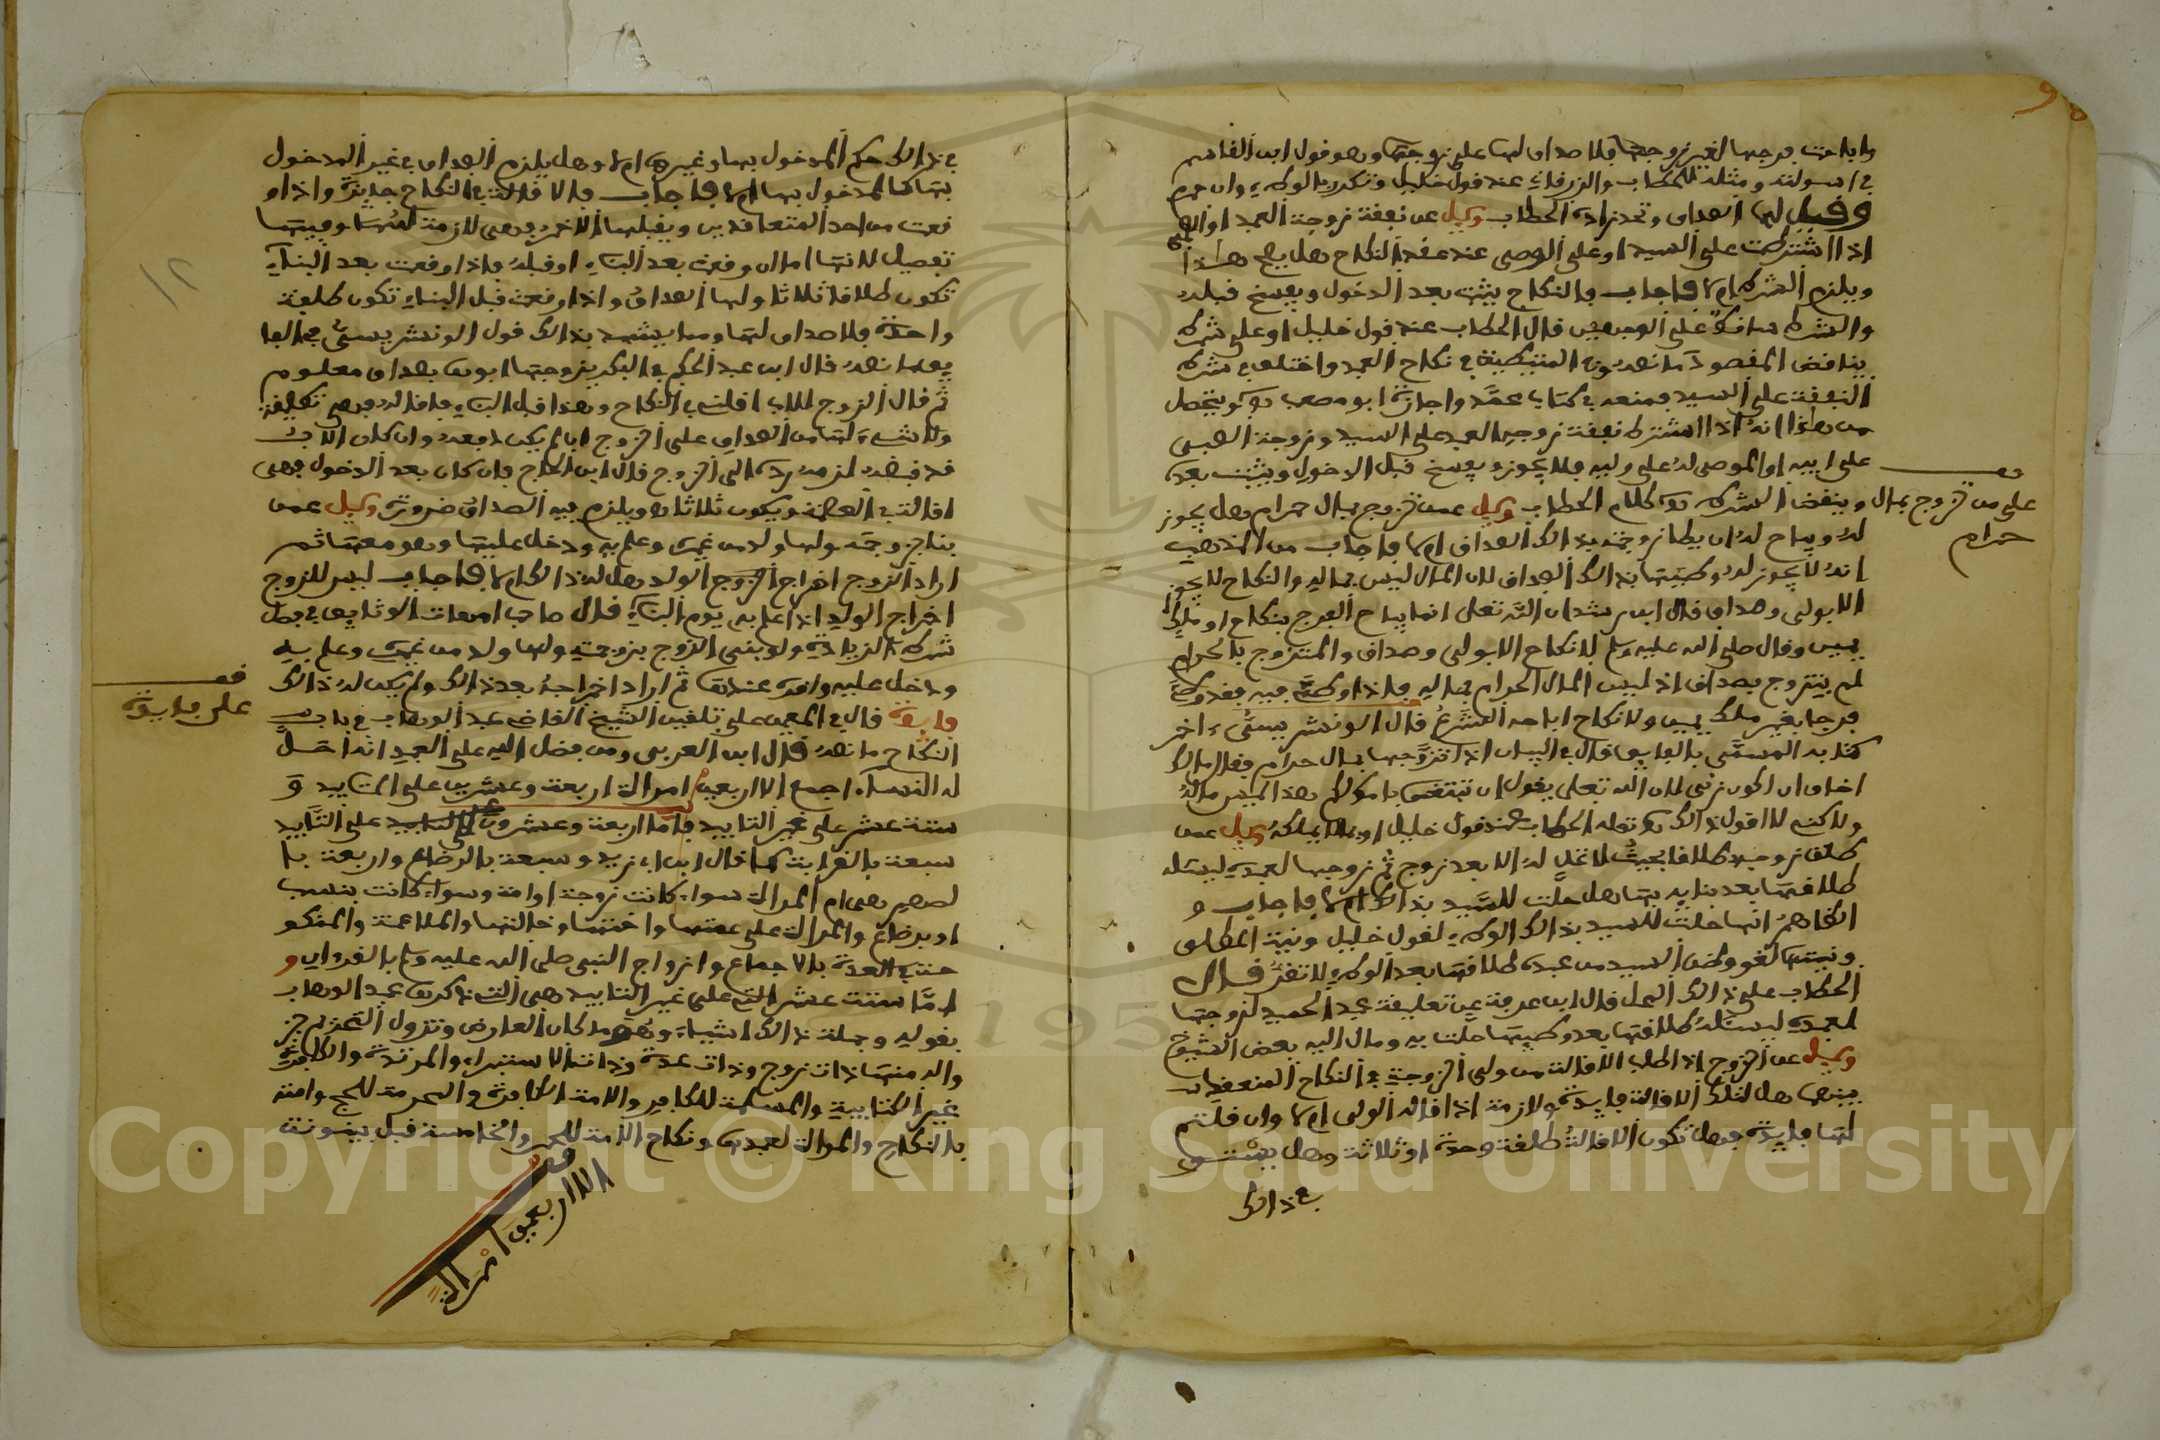 واباحت فرجها لغير زوجها فلا صداق لها على زوجها وهو قول ابن القاسم
في اسولته ومثله للحطاب والزرقاني عند قول خليل وتكرر بالوطء وان حرم
وقيل لها الصداق وسئل عن نفقة زوجة العبد او الصبي
اذا اشترطت على السيد او على الوصي عند عقد النكاح هل يصح هذا
ويلزم الشرط ام لا فاجاب فالنكاح يثبت بعد الدخول ويفسخ قبله
والشرط ساقط على الوجهين قال الحطاب عند قول خليل او على شرط
يناقض المقصود ما نصه وفي المتيطية في نكاح العبد واختلف في شرط
النفقة على السيد فمنعه في كتاب محمد واجازه ابو مصعب فيتحصل
من هذا انه اذا اشترط نفقة زوجة العبد على السيد وزوجة الصبي
على ابيه او الموصى له على وليه فلا يجوز ويفسخ قبل الدخول ويثبت بعده
وينقض الشرط كلام الحطاب وسئل عمن تزوج بمال حرام هل يجوز
له ويباح له ان يطا زوجته بذالك الصداق ام لا فاجاب من المذهب
انه لا يجوز له وطيتها بذالك الصداق لان المال ليس بماله والنكاح لا يجوز
الا بولي وصداق قال ابن رشد ان الله تعلى انما يباح الفرج بنكاح او ملك
يمين وقال صلى الله عليه وسلم لا نكاح الا بولي وصداق والمتزوج بالحرام
لم يتزوج بصداق اذ ليس المال الحرام بماله فاذا وطئ فيه فقد وطئ
فرجا بغير ملك يمين ولا نكاح اباحه الشرع قال الونشريسي ءاخر
كتابه المسمى بالفايق قال في البيان اذا تزوجها بمال حرام فقال مالك
اخاف ان اكون زنى لان الله تعلى يقول ان تبتغوا باموالكم وهذا ليس ماله
ولاكني لا اقول ذالك نقله الحطاب عند قول خليل او بما لا يملكه وسئل عمن
طلق زوجته طلاقا بحيث لا تحل له الا بعد زوج ثم زوجها لعبده ليسئله
طلاقها بعد بنايه بها هل حلت للسيد بذالك ام لا فاجاب و
الظاهر انها حلت للسيد بذالك الوطء لقول خليل ونية المطلق
ونيتها لغو وطلب السيد من عبده طلاقها بعد الوطء لا تضر قال
الحطاب على ذالك المحل قال ابن عرفة عن تعليقة عبد الحميد لو زوجها
لعبده ليسئله طلاقها بعد وطيتها حلت به ومال اليه بعض الشيوخ
وسئل عن الزوج اذا طلب الاقالة من ولي الزوجة في النكاح المنعقد
بينهما هل لتلك الاقالة فايدة ولازمة اذا اقاله الولي ام لا وان قلتم
لها فايدة فهل تكون الاقالة طلقة وحدة او ثلاثة وهل يستوي
في ذالك
قف
على من تزوج بمال
حرام
في ذالك حكم المدخول بها وغيرها ام لا وهل يلزم الصداق في غير المدخول
بها كالمدخول بها ام لا فاجاب فالاقالة في النكاح جايزة واذا و
قعت من احد المتعاقدين وقبلها الاخر فهي لازمة لهما وفيها
تفصيل لانها اما ان وقعت بعد البناء او قبله فاذا وقعت بعد البناء
تكون طلاقا ثلاثا ولها الصداق واذا وقعت قبل البناء تكون طلقة
واحدة ولا صداق لها ومما يشهد بذالك قول الونشريسي في الفا
يق ما نصه قال ابن عبد الحكم في البكر يزوجها ابوها بصداق معلوم
ثم قال الزوج للاب اقلني في النكاح وهذا قبل البناء فاقاله فهي تطليقة
ولا شيء لها من الصداق على الزوج ان لم يكن دفعه وان كان الاب
قد قبضه لزمه رده الى الزوج قال ابن الحاج فان كان بعد الدخول فهي
اقالة في العصمة ويكون ثلاثا ويلزم فيه الصداق ضرورة وسئل عمن
بنا بزوجته ولها ولد من غيره وعلم به ودخل عليها وهو معها ثم
اراد الزوج اخراج الولد هل له ذالك ام لا فاجاب ليس للزوج
اخراج الولد اذا علم به يوم البناء قال صاحب امهات الوثايق في فصل
شرط الزيادة ولو بنى الزوج بزوجته ولها ولد من غيره وعلم به
ودخل عليه وامه عندها ثم اراد اخراجه بعد ذالك ولم يكن له ذالك
فايدة قال في المعين على تلقين الشيخ القاضي عبد الوهاب في باب
النكاح ما نصه قال ابن العربي ومن فضل الله على العبد انه احل
له النساء اجمع الا اربعين امراة اربعة وعشرين على التابيد و
ستة عشر على غير التابيد فاما اربعة وعشرون على التابيد
سبعة بالقرابة كما قال ابن ابي زيد وسبعة بالرضاع واربعة با
لصهر وهي ام المراة سواء كانت زوجة او امة وسواء كانت بنسب
او برضاع والمراة على عمتها واختها وخالتها والملاعنة والمنكو
حة في العدة بالاجماع وازواج النبي صلى الله عليه وسلم بالقرءان و
اما ستة عشر التي على غير التابيد هي التي ذكرها عبد الوهاب
بقوله وجملة ذالك اشياء وهو ما كان لعارض وتزول التحريم بز
واله منها ذات زوج وذات عدة وذات الاستبراء والمرتدة والكافرة
غير الكتابية والمسلمة للكافر والامة الكافرة والمحرمة للحج وامة
بالنكاح والمراة لعبدها ونكاح الامة للحر والخامسة قبل بينونة
قف
على فايدة
قف
الاربعين امراة
Copyright © King Saud University
195